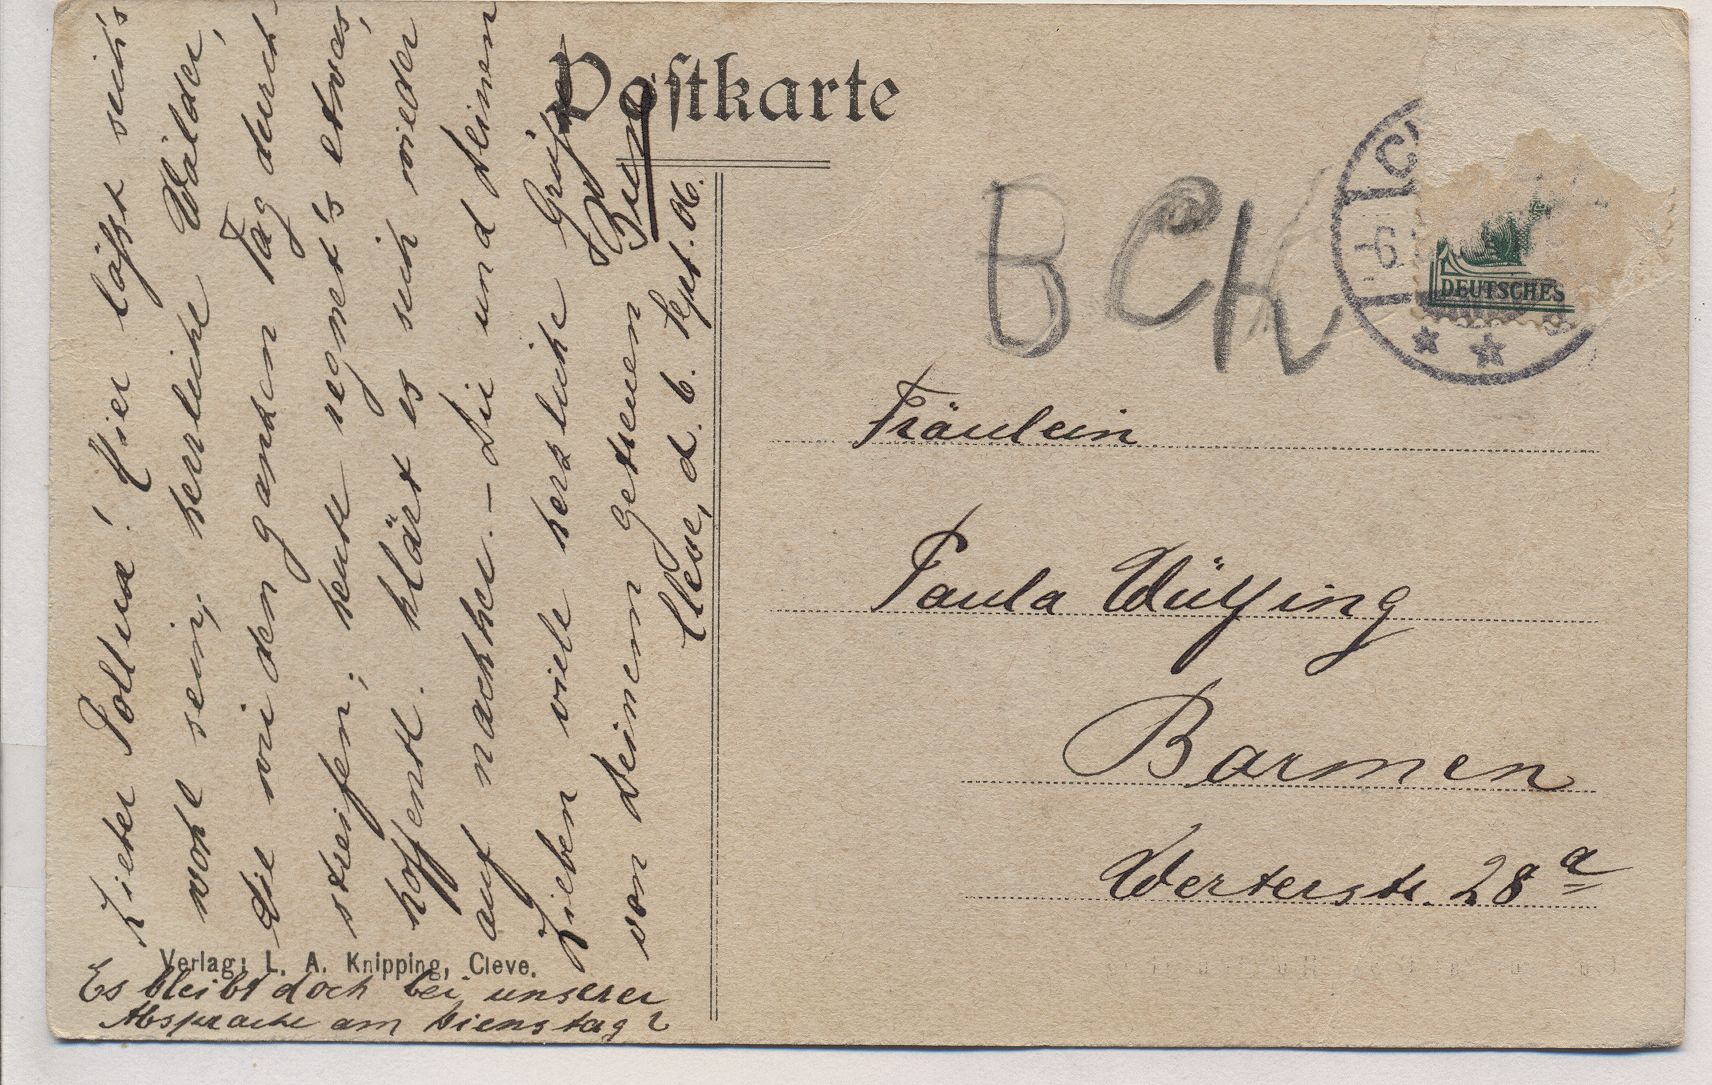 Postkarte
BCK
C
-6.
DEUTSCHES
Fräulein
Paula Wülfing
Barmen
Werterstr. 28a
Lieber Pollux! Hier läßt sich's
wohl sein; herrliche Wälder,
die wir den ganzen Tag durch-
streifen; heute regnet's etwas,
hoffentl. klärt es sich wieder
auf nachher. – Dir und Deinen
Lieben viele herzliche Grüße
von Deinem getreuen
Cleve, d. 6. Sept. 06.
Verlag: L. A. Knipping, Cleve.
Es bleibt doch bei unserer
Absprache am Dienstag?